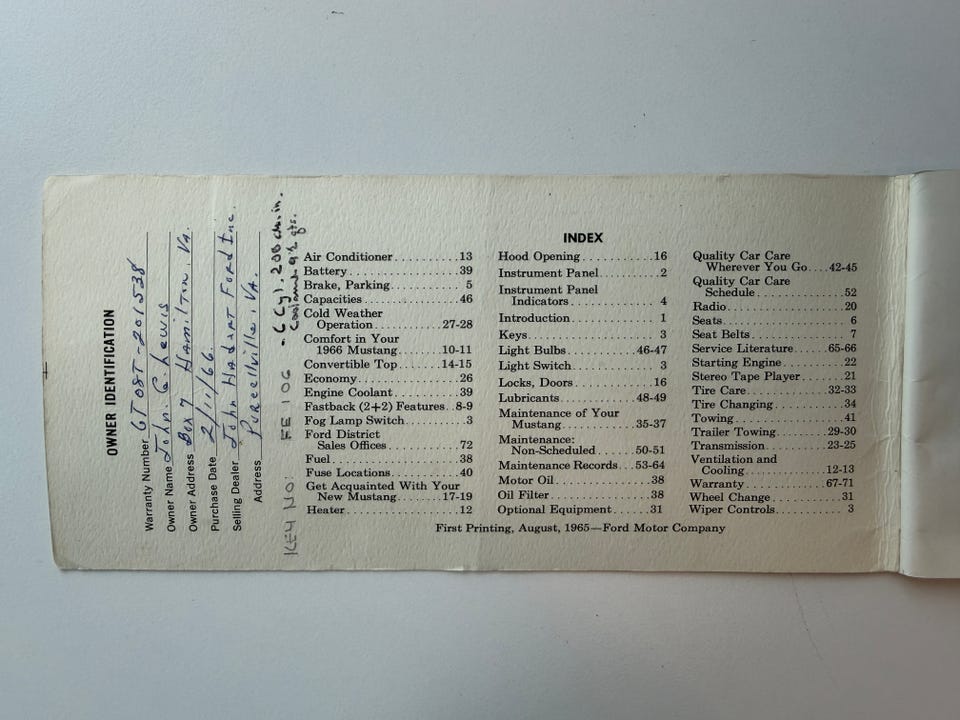 OWNER IDENTIFICATION
Warranty Number 6T08T-201538
Owner Name John C. Lewis
Owner Address Box 7 Hamilton, Va.
Purchase Date 2/11/66
Selling Dealer John Ford Inc.
Address Purcellville, VA.
KEY NO: FE 106 - 6 Cyl. 200 cu. in.
INDEX
Air Conditioner..........13
Battery..................39
Brake, Parking........... 5
Capacities...............46
Cold Weather
Operation............27-28
Comfort in Your
1966 Mustang.........10-11
Convertible Top........14-15
Economy..................26
Engine Coolant...........39
Fastback (2+2) Features..8-9
Fog Lamp Switch..........3
Ford District
Sales Offices............72
Fuel.....................38
Fuse Locations...........40
Get Acquainted With Your
New Mustang..........17-19
Heater...................12
Hood Opening.............16
Instrument Panel..........2
Instrument Panel
Indicators.............. 4
Introduction............. 1
Keys..................... 3
Light Bulbs...........46-47
Light Switch............. 3
Locks, Doors.............16
Lubricants............48-49
Maintenance of Your
Mustang..............35-37
Maintenance:
Non-Scheduled........50-51
Maintenance Records...53-64
Motor Oil................38
Oil Filter...............38
Optional Equipment.......31
Quality Car Care
Wherever You Go....42-45
Quality Car Care
Schedule................52
Radio....................20
Seats.................... 6
Seat Belts............... 7
Service Literature....65-66
Starting Engine..........22
Stereo Tape Player.......21
Tire Care.............32-33
Tire Changing............34
Towing...................41
Trailer Towing........29-30
Transmission..........23-25
Ventilation and
Cooling..............12-13
Warranty..............67-71
Wheel Change.............31
Wiper Controls........... 3
First Printing, August, 1965—Ford Motor Company